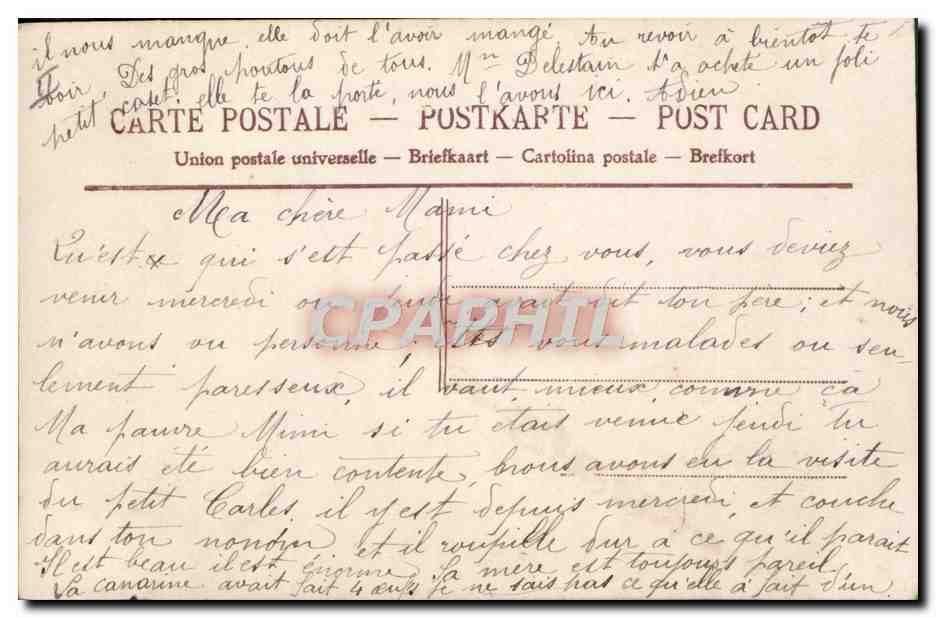 il nous manque elle doit l'avoir mangé Au revoir à bientot te
voir. Des gros poutous de tous. Mme Delestain t'a acheté un joli
petit caset. elle te la porte, nous l'avons ici. Adieu
CARTE POSTALE — POSTKARTE — POST CARD
Union postale universelle — Briefkaart — Cartolina postale — Brefkort
Ma chère Mami
Qu'est qui s'est passé chez vous, vous deviez
venir mercredi ou jeudi avait dit ton père; et nous
n'avons vu personne; êtes vous malades ou seu-
lement paresseux, il vaut mieux comme ça
Ma pauvre Mimi si tu étais venue jeudi tu
aurais été bien contente, nous avons eu la visite
du petit Carles, il y est depuis mercredi et couche
dans ton nonom et il roupille dur a ce qu'il parait
Il est beau il est énorme. Sa mère est toujours pareil.
La canarine avait fait 4 œufs je ne sais pas ce qu'elle a fait d'un
CPAPHIL